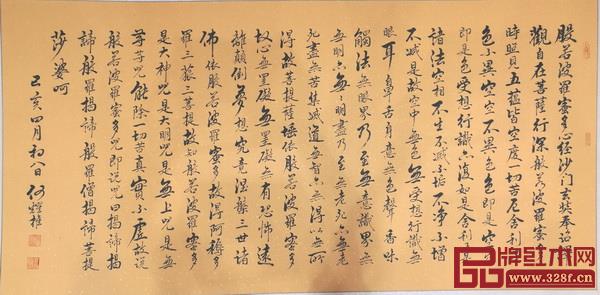 般若波羅蜜多心經沙門玄奘奉詔譯
觀自在菩薩行深般若波羅蜜多
時照見五蘊皆空度一切苦厄舍利子
色不異空空不異色色即是空空
即是色受想行識亦復如是舍利子是
諸法空相不生不滅不垢不淨不增
不減是故空中無色無受想行識無
眼耳鼻舌身意無色聲香味
觸法無眼界乃至無意識界無
無明亦無無明盡乃至無老死亦無老
死盡無苦集滅道無智亦無得以無所
得故菩提薩埵依般若波羅蜜多
故心無罣礙無罣礙無有恐怖遠
離顛倒夢想究竟涅槃三世諸
佛依般若波羅蜜多故得阿耨多
羅三藐三菩提故知般若波羅蜜多
是大神咒是大明咒是無上咒是無
等等咒能除一切苦真實不虛故說
般若波羅蜜多咒即說咒曰揭諦揭
諦般羅揭諦般羅僧揭諦菩提
莎婆呵
己亥四月初八日何
品牌红木网
www.328f.cn
www.328f.com